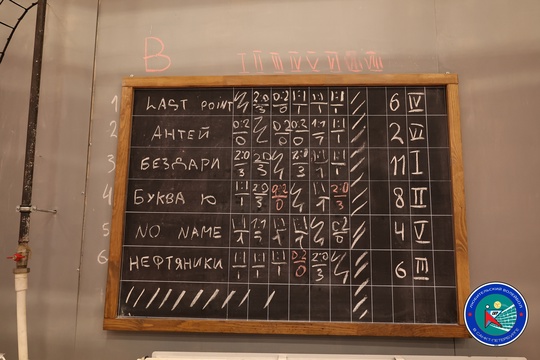 В I II III IV V VI VII VIII
1 LAST POINT 2:0/3 0:2/0 1:1/1 1:1/1 1:1/1 6 IV
2 АНТЕЙ 0:2/0 0:2/0 0:2/0 1:1/1 1:1/1 2 VI
3 БЕЗДАРИ 2:0/3 2:0/3 2:0/3 1:1/1 1:1/1 11 I
4 БУКВА Ю 1:1/1 2:0/3 0:2/0 1:1/1 2:0/3 8 II
5 NO NAME 1:1/1 1:1/1 1:1/1 1:1/1 0:2/0 4 V
6 НЕФТЯНИКИ 1:1/1 1:1/1 1:1/1 0:2/0 2:0/3 6 III
ЛЮБИТЕЛЬСКИЙ ВОЛЕЙБОЛ
В САНКТ-ПЕТЕРБУРГЕ